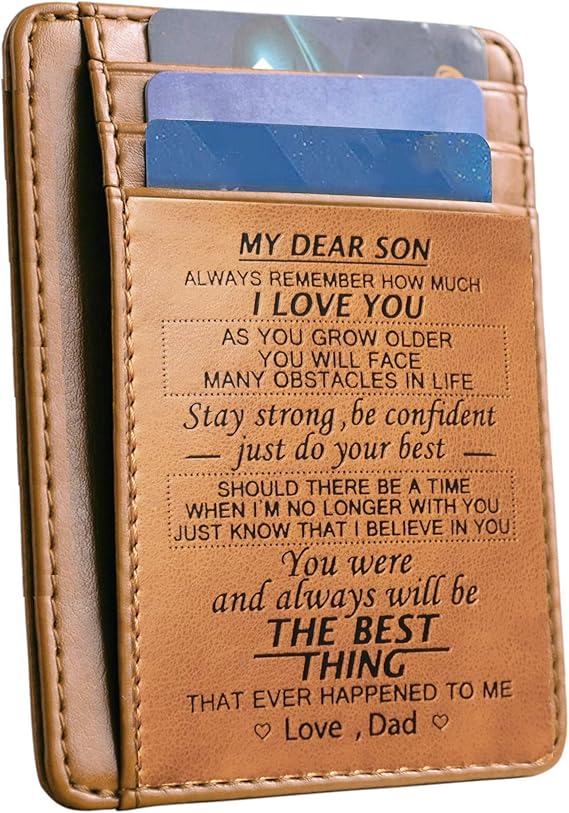 MY DEAR SON
ALWAYS REMEMBER HOW MUCH
I LOVE YOU
AS YOU GROW OLDER
YOU WILL FACE
MANY OBSTACLES IN LIFE
Stay strong , be confident
— just do your best —
SHOULD THERE BE A TIME
WHEN I'M NO LONGER WITH YOU
JUST KNOW THAT I BELIEVE IN YOU
You were
and always will be
THE BEST
THING
THAT EVER HAPPENED TO ME
♡ Love , Dad ♡